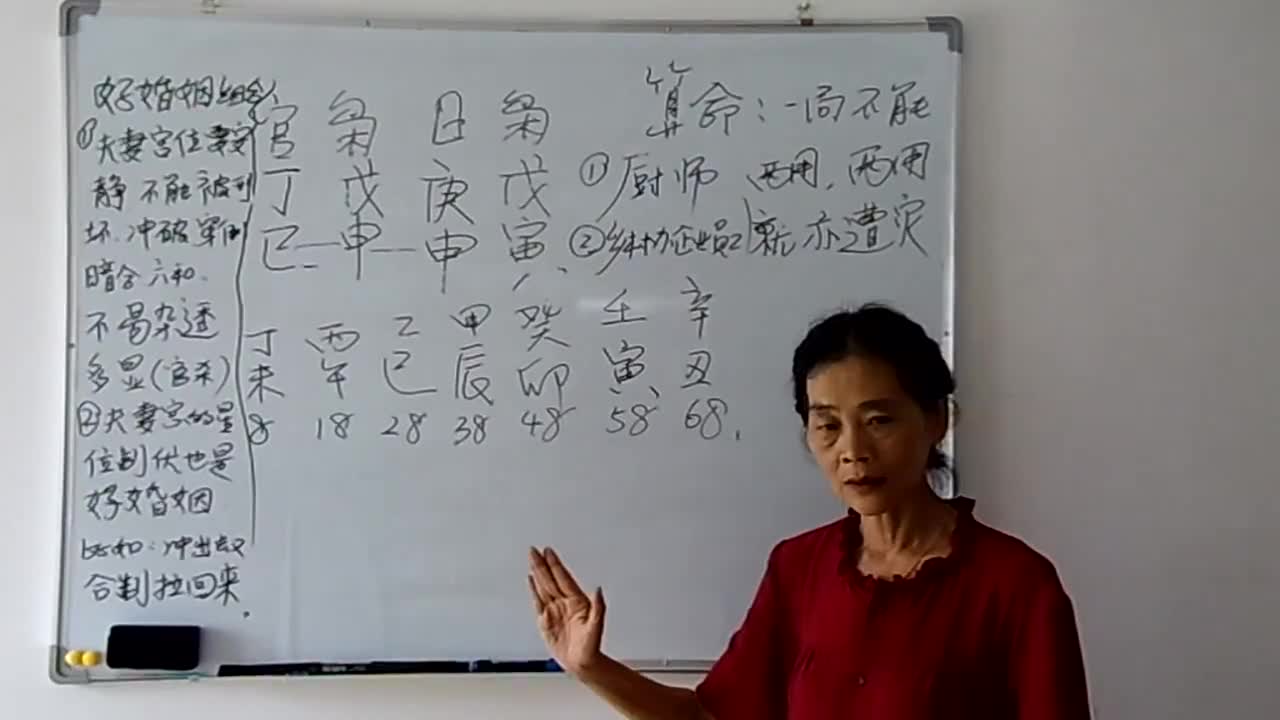 好婚姻组合
①夫妻宫位要安
静不能被刑
坏.冲破穿倒
暗合六和.
不易杂透
多显(官杀)
②夫妻宫的星
位制伏也是
好婚姻
比如:冲出去又
合制拉回来.
官 枭 日 枭
丁 戊 庚 戊
巳 申 申 寅
丁 丙 乙 甲 癸 壬 辛
未 午 巳 辰 卯 寅 丑
8 18 28 38 48 58 68.
算命:一局不能
①厨师 两用,两用
②乡村协企业员工 就亦遭灾